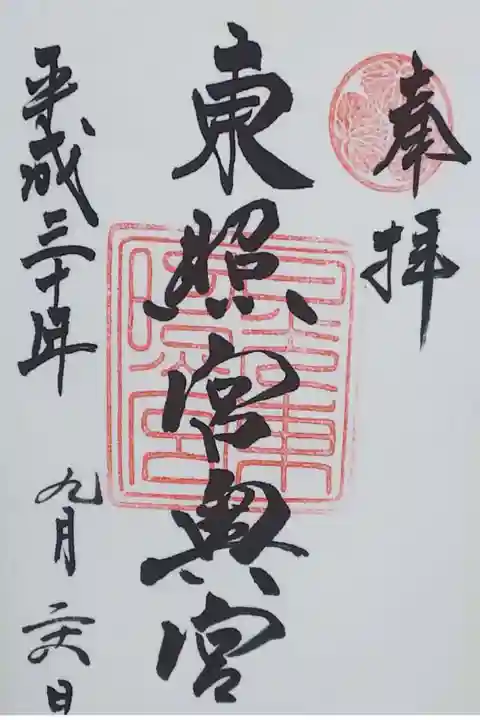 奉拝
東照宮奥宮
平成三十年 九月 二六日